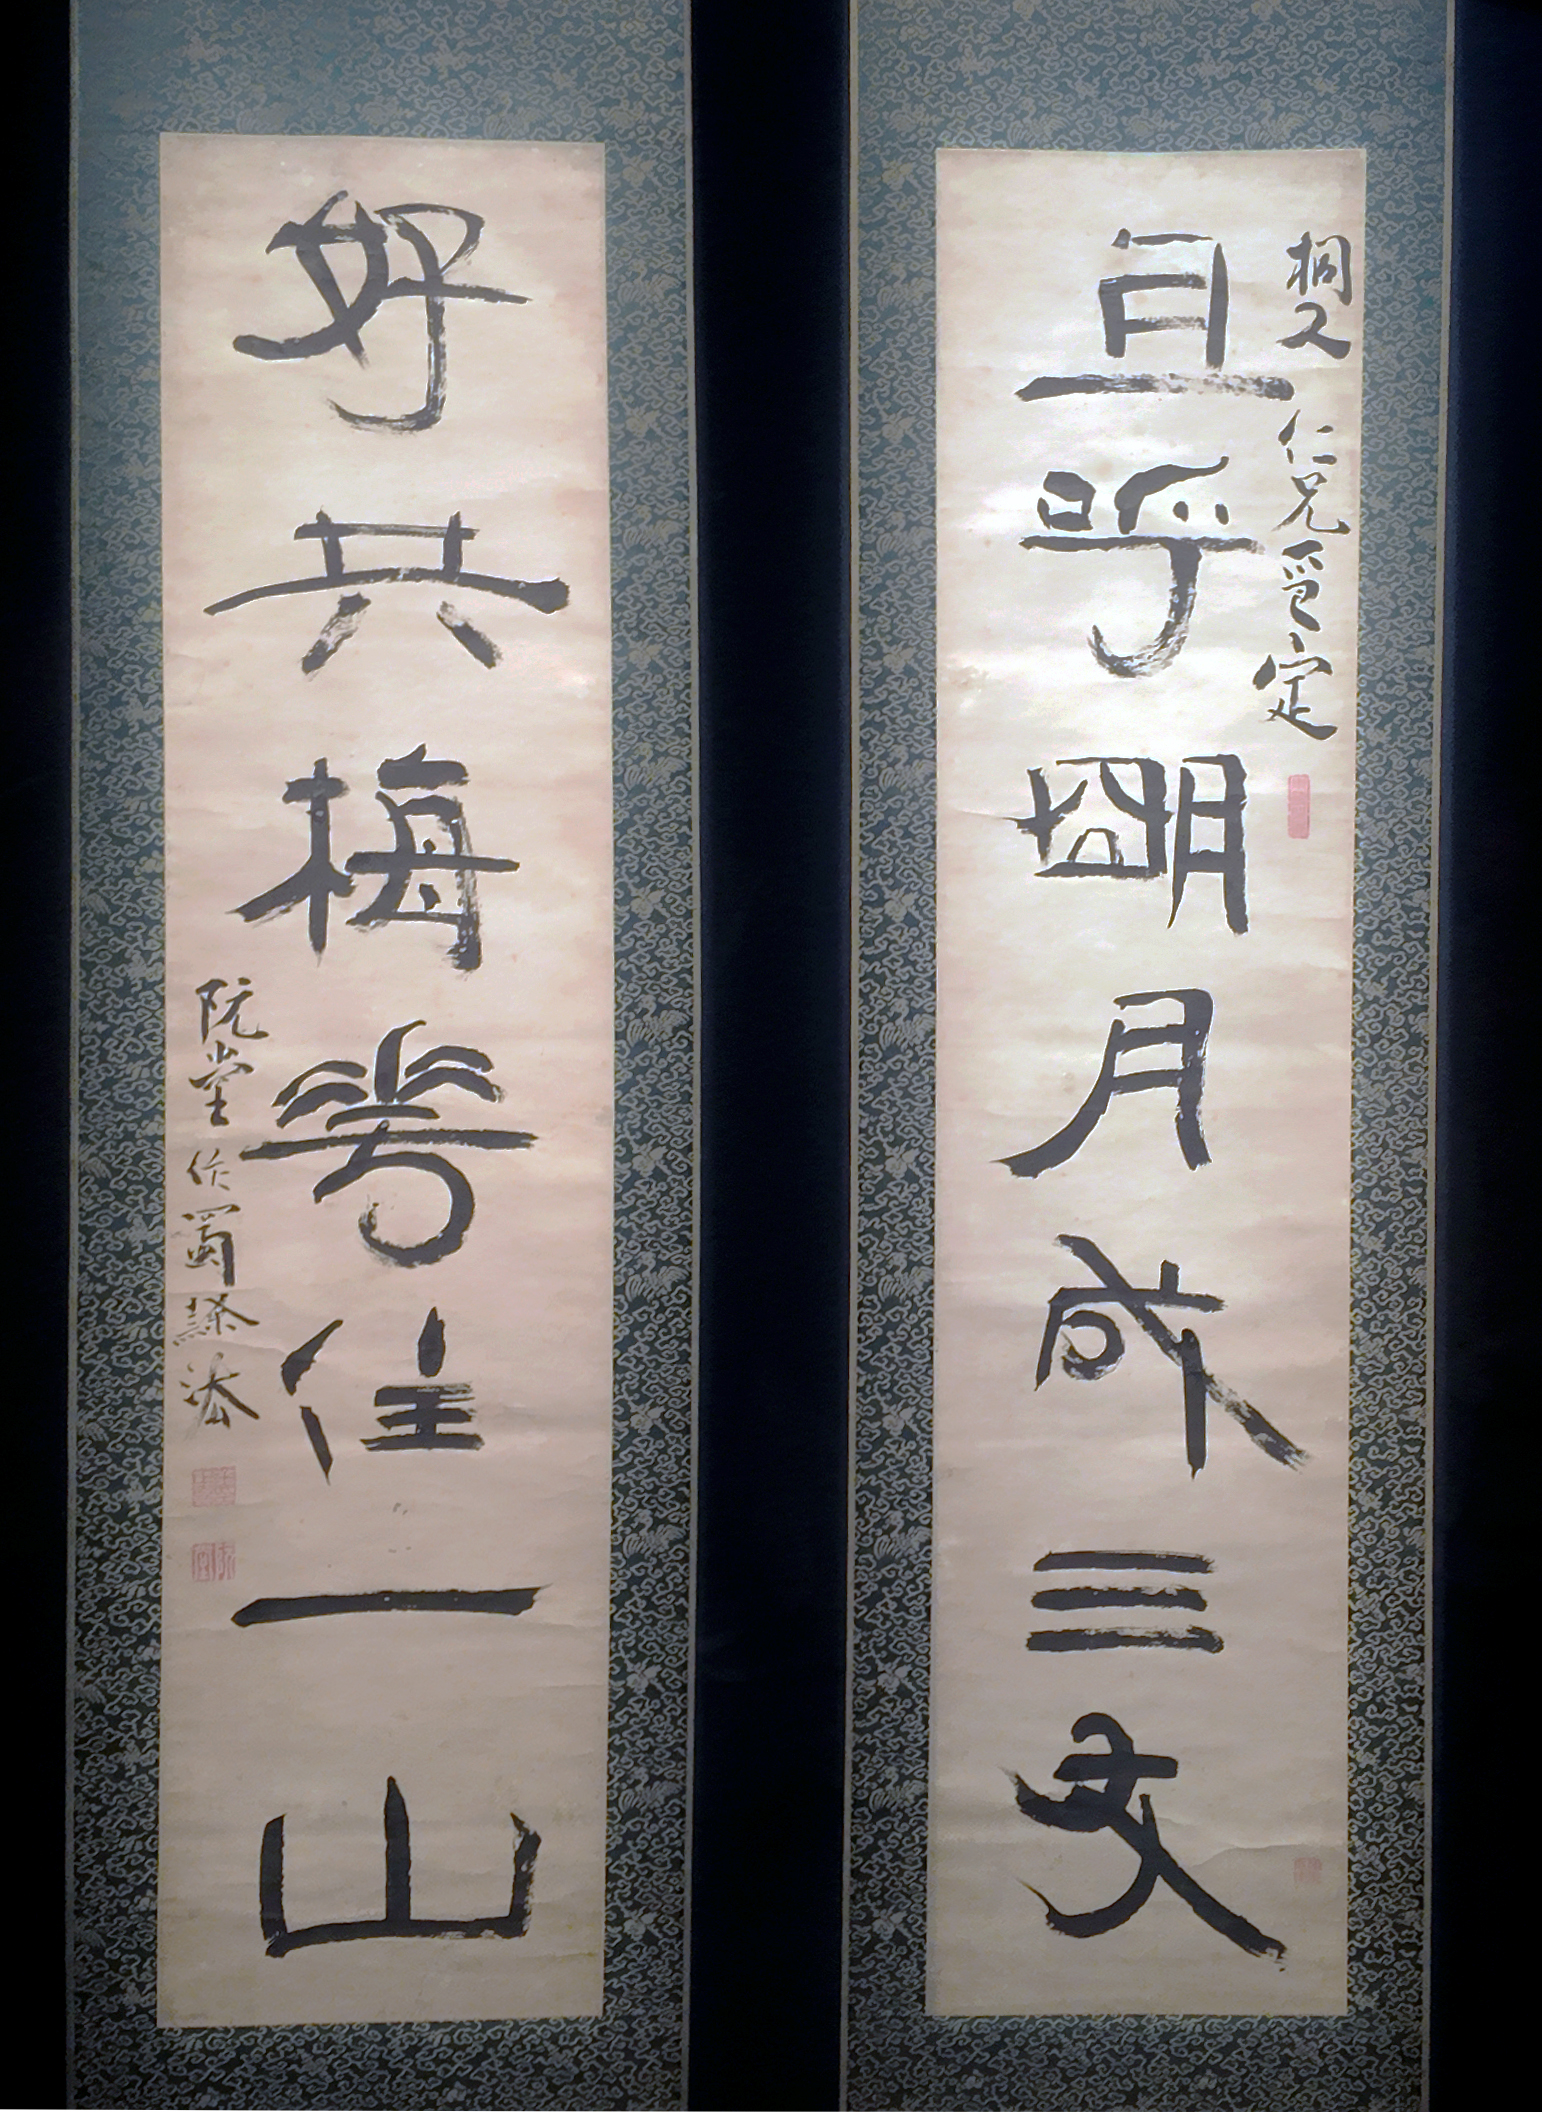 桐人仁兄定
且呼明月成三友
好共梅花住一山
阮堂作蜀隸法